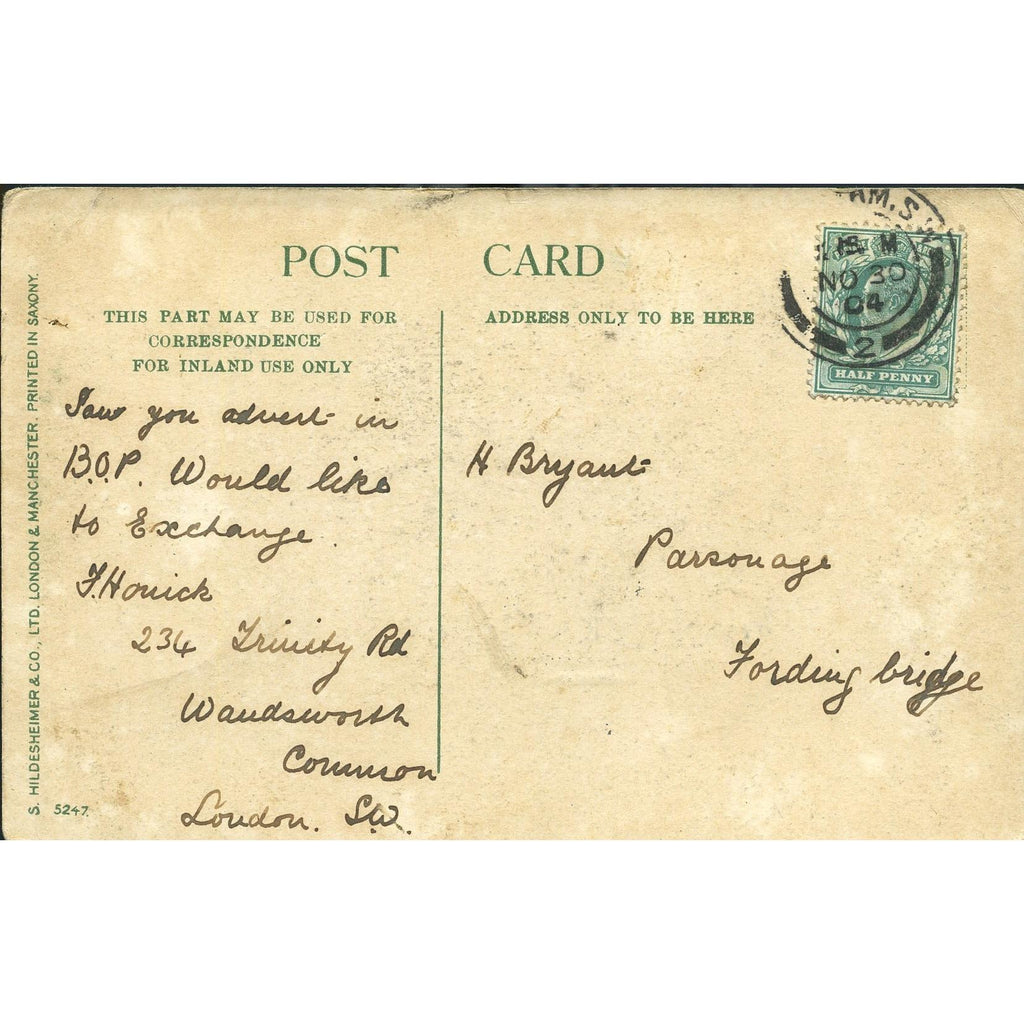 POST CARD
THIS PART MAY BE USED FOR
CORRESPONDENCE
FOR INLAND USE ONLY
ADDRESS ONLY TO BE HERE
Saw you advert in
B.O.P. Would like
to Exchange.
F. Honick
234 Trinity Rd
Wandsworth
Common
London. S.W.
H Bryant
Parsonage
Fordingbridge
AM.S.
NO 30
04
2
HALF PENNY
S. HILDESHEIMER & CO., LTD. LONDON & MANCHESTER. PRINTED IN SAXONY.
5247.